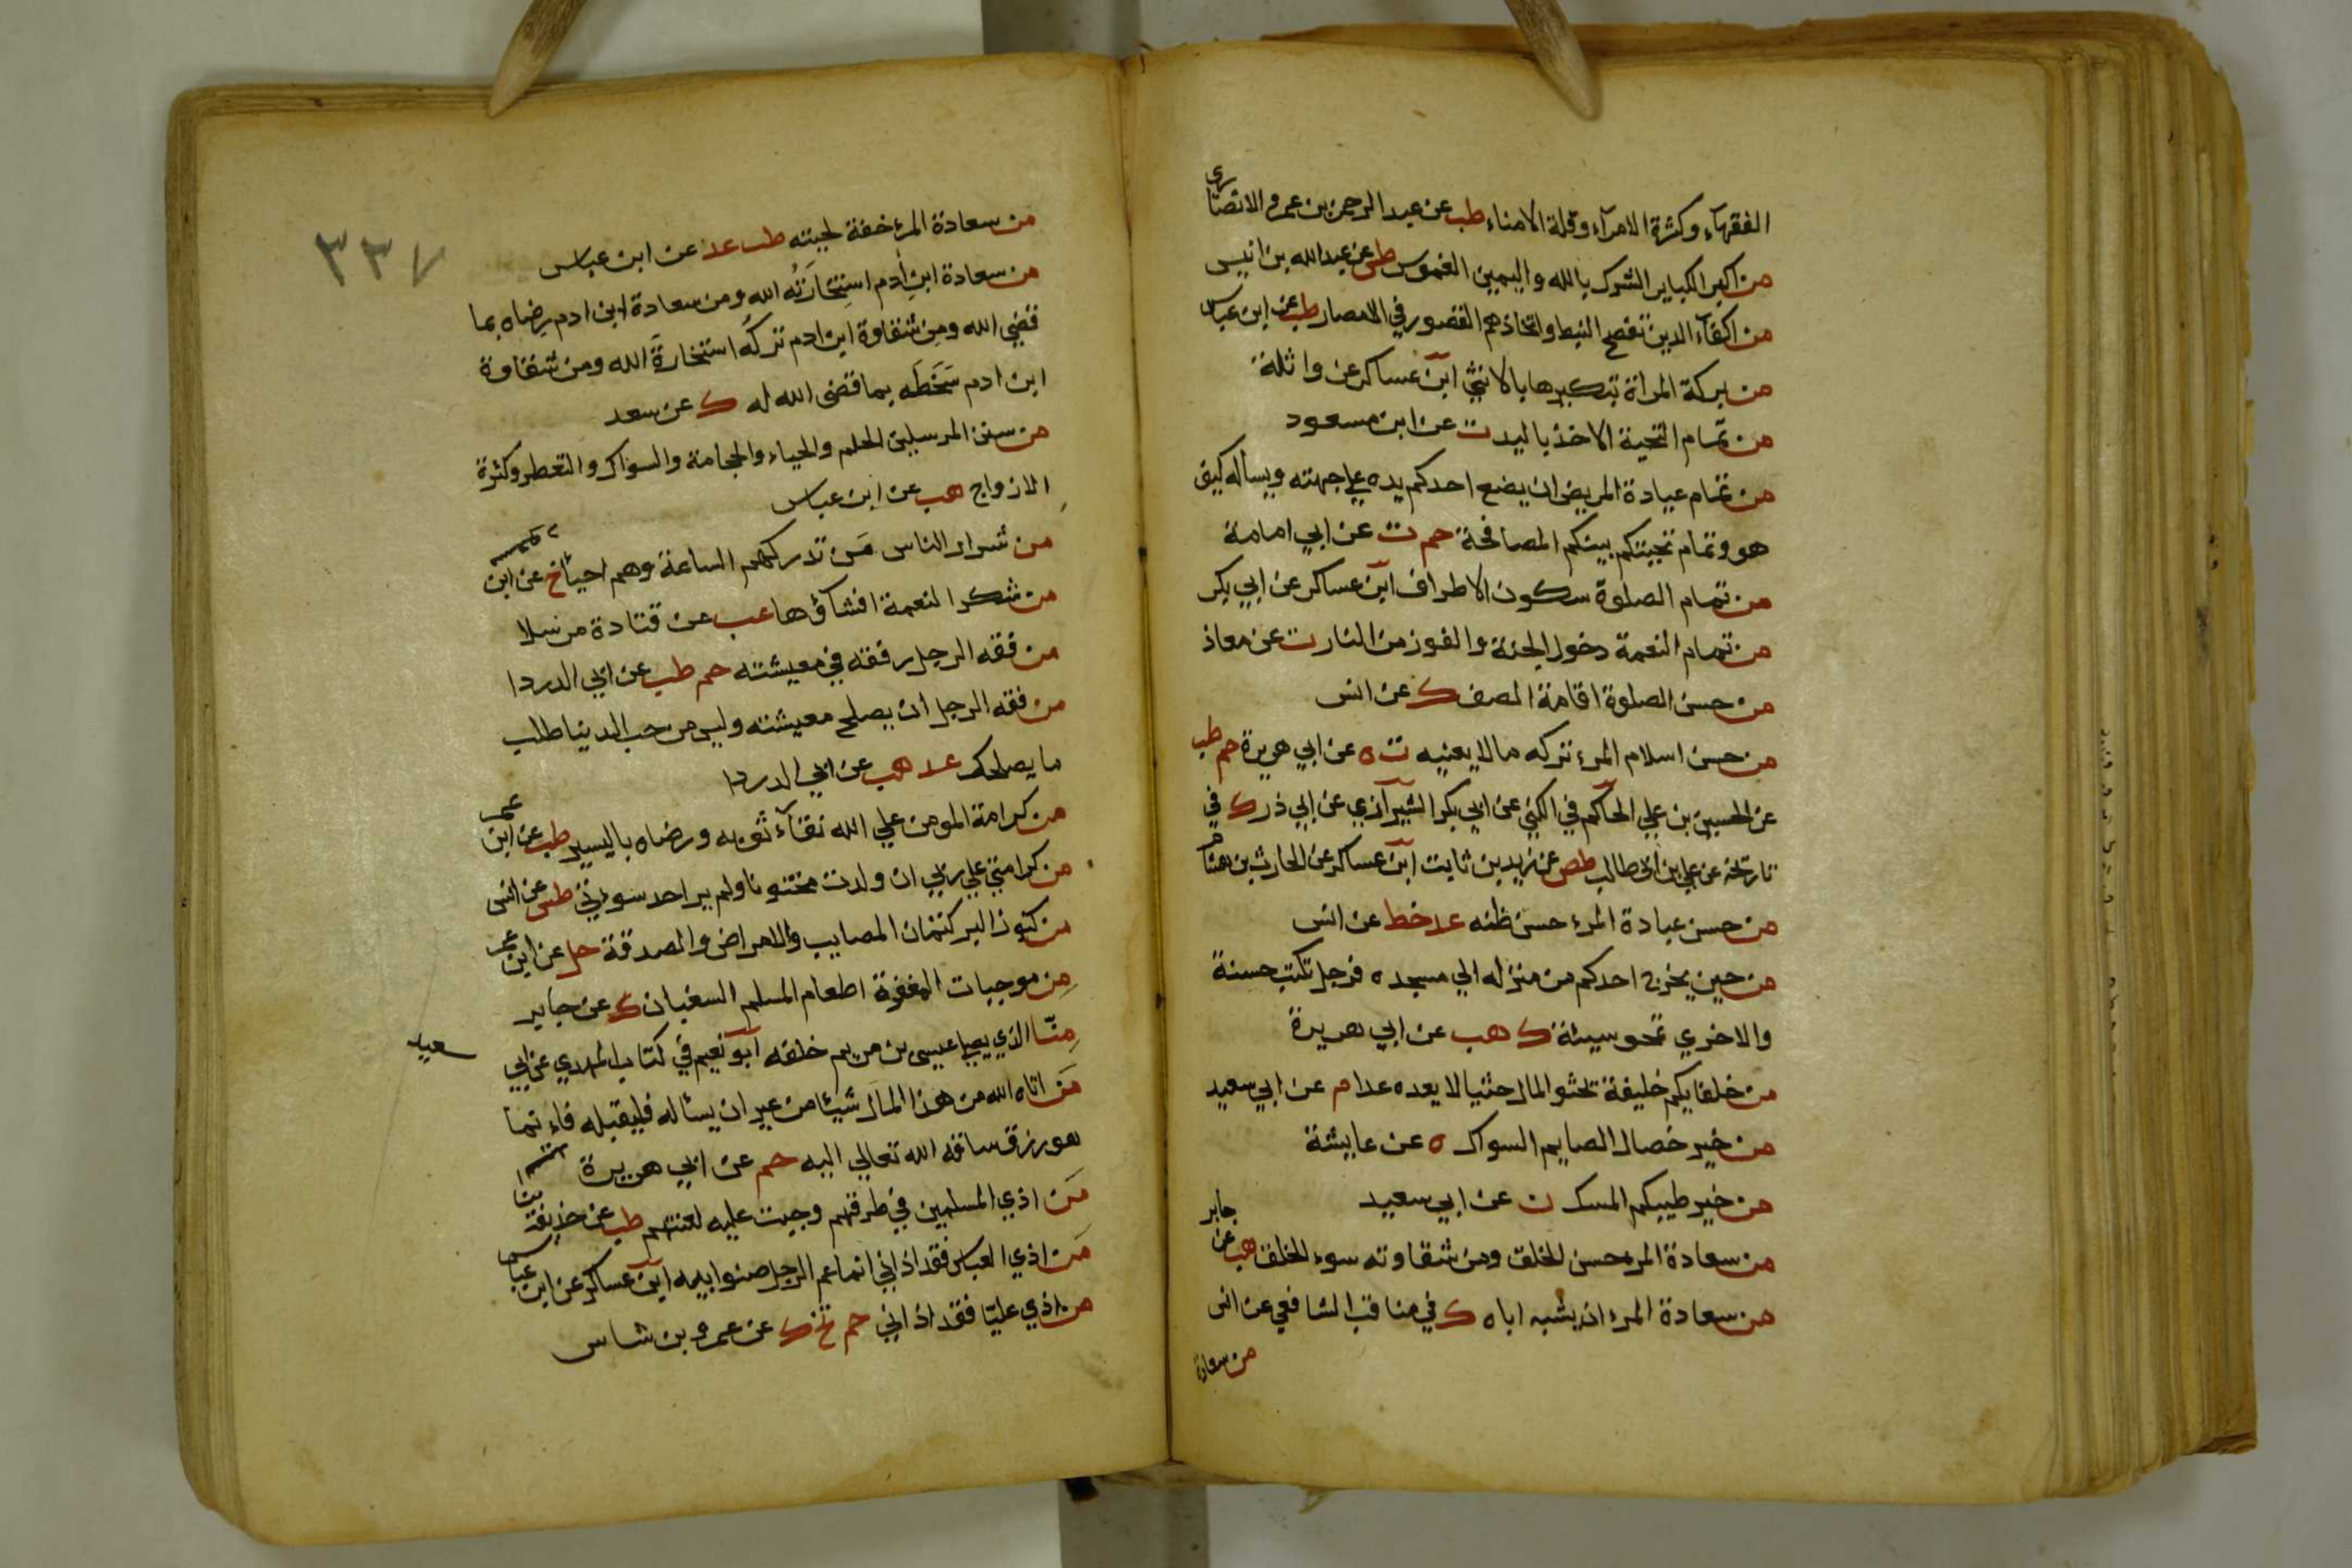 الفقهآء وكثرة الامرآء وقلة الامناء طب عن عبد الرحمن بن عمرو الانصاري
من اكبر الكباير الشرك بالله واليمين الغموس طس عن عبد الله بن انيس
من اكفآء الدين تفصح النبط واتخاذهم القصور في الامصار طب عن ابن عباس
من بركة المراة تبكيرها بالانثي ابن عساكر عن واثلة
من تمام التحية الاخذ باليد ت عن ابن مسعود
من تمام عيادة المريض ان يضع احدكم يده علي جبهته ويسأله كيف
هو وتمام تحيتكم بينكم المصافحة حم ت عن ابي امامة
من تمام الصلوة سكون الاطراف ابن عساكر عن ابي بكر
من تمام النعمة دخول الجنة والفوز من النار ت عن معاذ
من حسن الصلوة اقامة الصف ك عن انس
من حسن اسلام المرء تركه ما لا يعنيه ت ه عن ابي هريرة حم طب
عن الحسين بن علي الحاكم في الكني عن ابي بكر الشيرازي عن ابي ذر ك في
تاريخه عن علي ابن ابي طالب طص عن زيد بن ثابت ابن عساكر عن الحارث بن هشام
من حسن عبادة المرء حسن ظنه عد خط عن انس
من حين يخرج احدكم من منزله الي مسجده فرجل تكتب حسنة
والاخري تمحو سيئة ك هب عن ابي هريرة
من خلفايكم خليفة يحثو المال حثيا لا يعده عدا م عن ابي سعيد
من خير خصال الصايم السواك ه عن عايشة
من خير طيبكم المسك ن عن ابي سعيد
من سعادة المرء حسن الخلق ومن شقاوته سوء الخلق هب عن جابر
من سعادة المرء ان يشبه اباه ك في مناقب الشافعي عن انس
من سعادة
٣٣٧
من سعادة المرء خفة لحيته طب عد عن ابن عباس
من سعادة ابن ادم استخارته الله ومن سعادة ابن ادم رضاه بما
قضي الله ومن شقاوة ابن ادم تركه استخارة الله ومن شقاوة
ابن ادم سَخَطَه بما قضي الله له ك عن سعد
من سنن المرسلين الحلم والحياء والحجامة والسواك والتعطر وكثرة
الازواج هب عن ابن عباس
من شرار الناس مَن تدركهم الساعة وهم احياء خ عن ابن
من شكر النعمة افشاؤها عب عن قتادة مرسلا
من فقه الرجل رفقه في معيشته حم طب عن ابي الدردا
من فقه الرجل ان يصلح معيشته وليس من حب الدنيا طلب
ما يصلحك عد هب عن ابي الدردا
من كرامة المومن علي الله نقآء ثوبه ورضاه باليسير طب عن ابن عمر
من كرامتي علي ربي ان ولدت مختونا ولم ير احد سوءتي طس عن انس
من كنوز البر كتمان المصايب والامراض والصدقة حل عن ابن عمر
مِن موجبات المغفرة اطعام المسلم السغبان ك عن جابر
مِنّا الذي يصلي عيسي بن مريم خلفه ابو نعيم في كتاب المهدي عن ابي
سعيد
مَن اتاه الله من هذا المال شيئا من غير ان يسئاله فليقبله فاءنما
هو رزق ساقه الله تعالي اليه حم عن ابي هريرة
مَن اذي المسلمين في طرقهم وجبت عليه لعنتهم طب عن حذيفة
مَن اذي العباس فقد اذاني انما عم الرجل صنو ابيه ابن عساكر عن ابن عباس
من اذي عليّا فقد اذاني حم تخ ك عن عمرو بن شاس